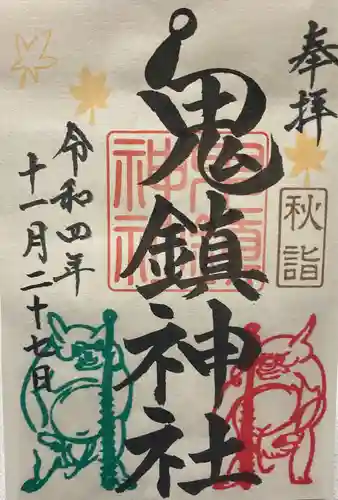 奉拝
秋詣
鬼鎮神社
鬼鎮神社
令和四年
十一月二十七日